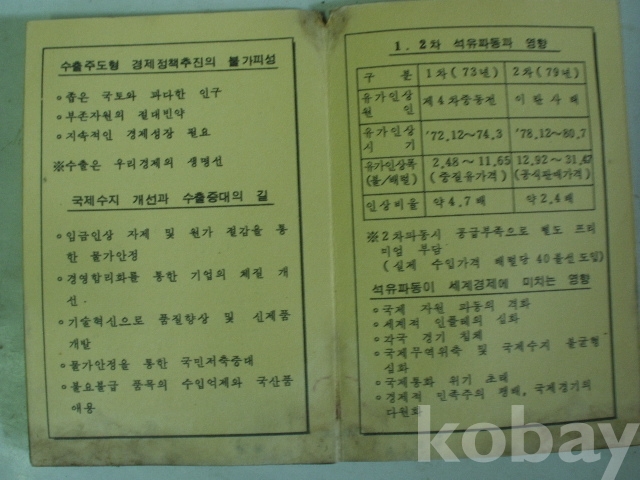 수출주도형 경제정책추진의 불가피성
◦ 좁은 국토와 과다한 인구
◦ 부존자원의 절대빈약
◦ 지속적인 경제성장 필요
※수출은 우리경제의 생명선
국제수지 개선과 수출증대의 길
◦ 임금인상 자제 및 원가 절감을 통
한 물가안정
◦ 경영합리화를 통한 기업의 체질 개
선.
◦ 기술혁신으로 품질향상 및 신제품
개발
◦ 물가안정을 통한 국민저축증대
◦ 불요불급 품목의 수입억제와 국산품
애용
1. 2차 석유파동과 영향
구 분 1차(73년) 2차(79년)
유가인상 원인 제4차중동전 이란사태
유가인상 시기 '72.12~74.3 '78.12~80.7
유가인상폭 (불/배럴) 2.48~11.65 (중질유가격) 12.92~31.47 (공식판매가격)
인상비율 약4.7배 약2.4배
※2차파동시 공급부족으로 별도 프리
미엄 부담
(실제 수입가격 배럴당 40불선 도입)
석유파동이 세계경제에 미치는 영향
◦국제 자원 파동의 격화
◦세계적 인플레의 심화
◦각국 경기 침체
◦국제무역위축 및 국제수지 불균형
심화
◦국제통화 위기 초래
◦경제적 민족주의 팽배, 국제경기의
다원화
kobay